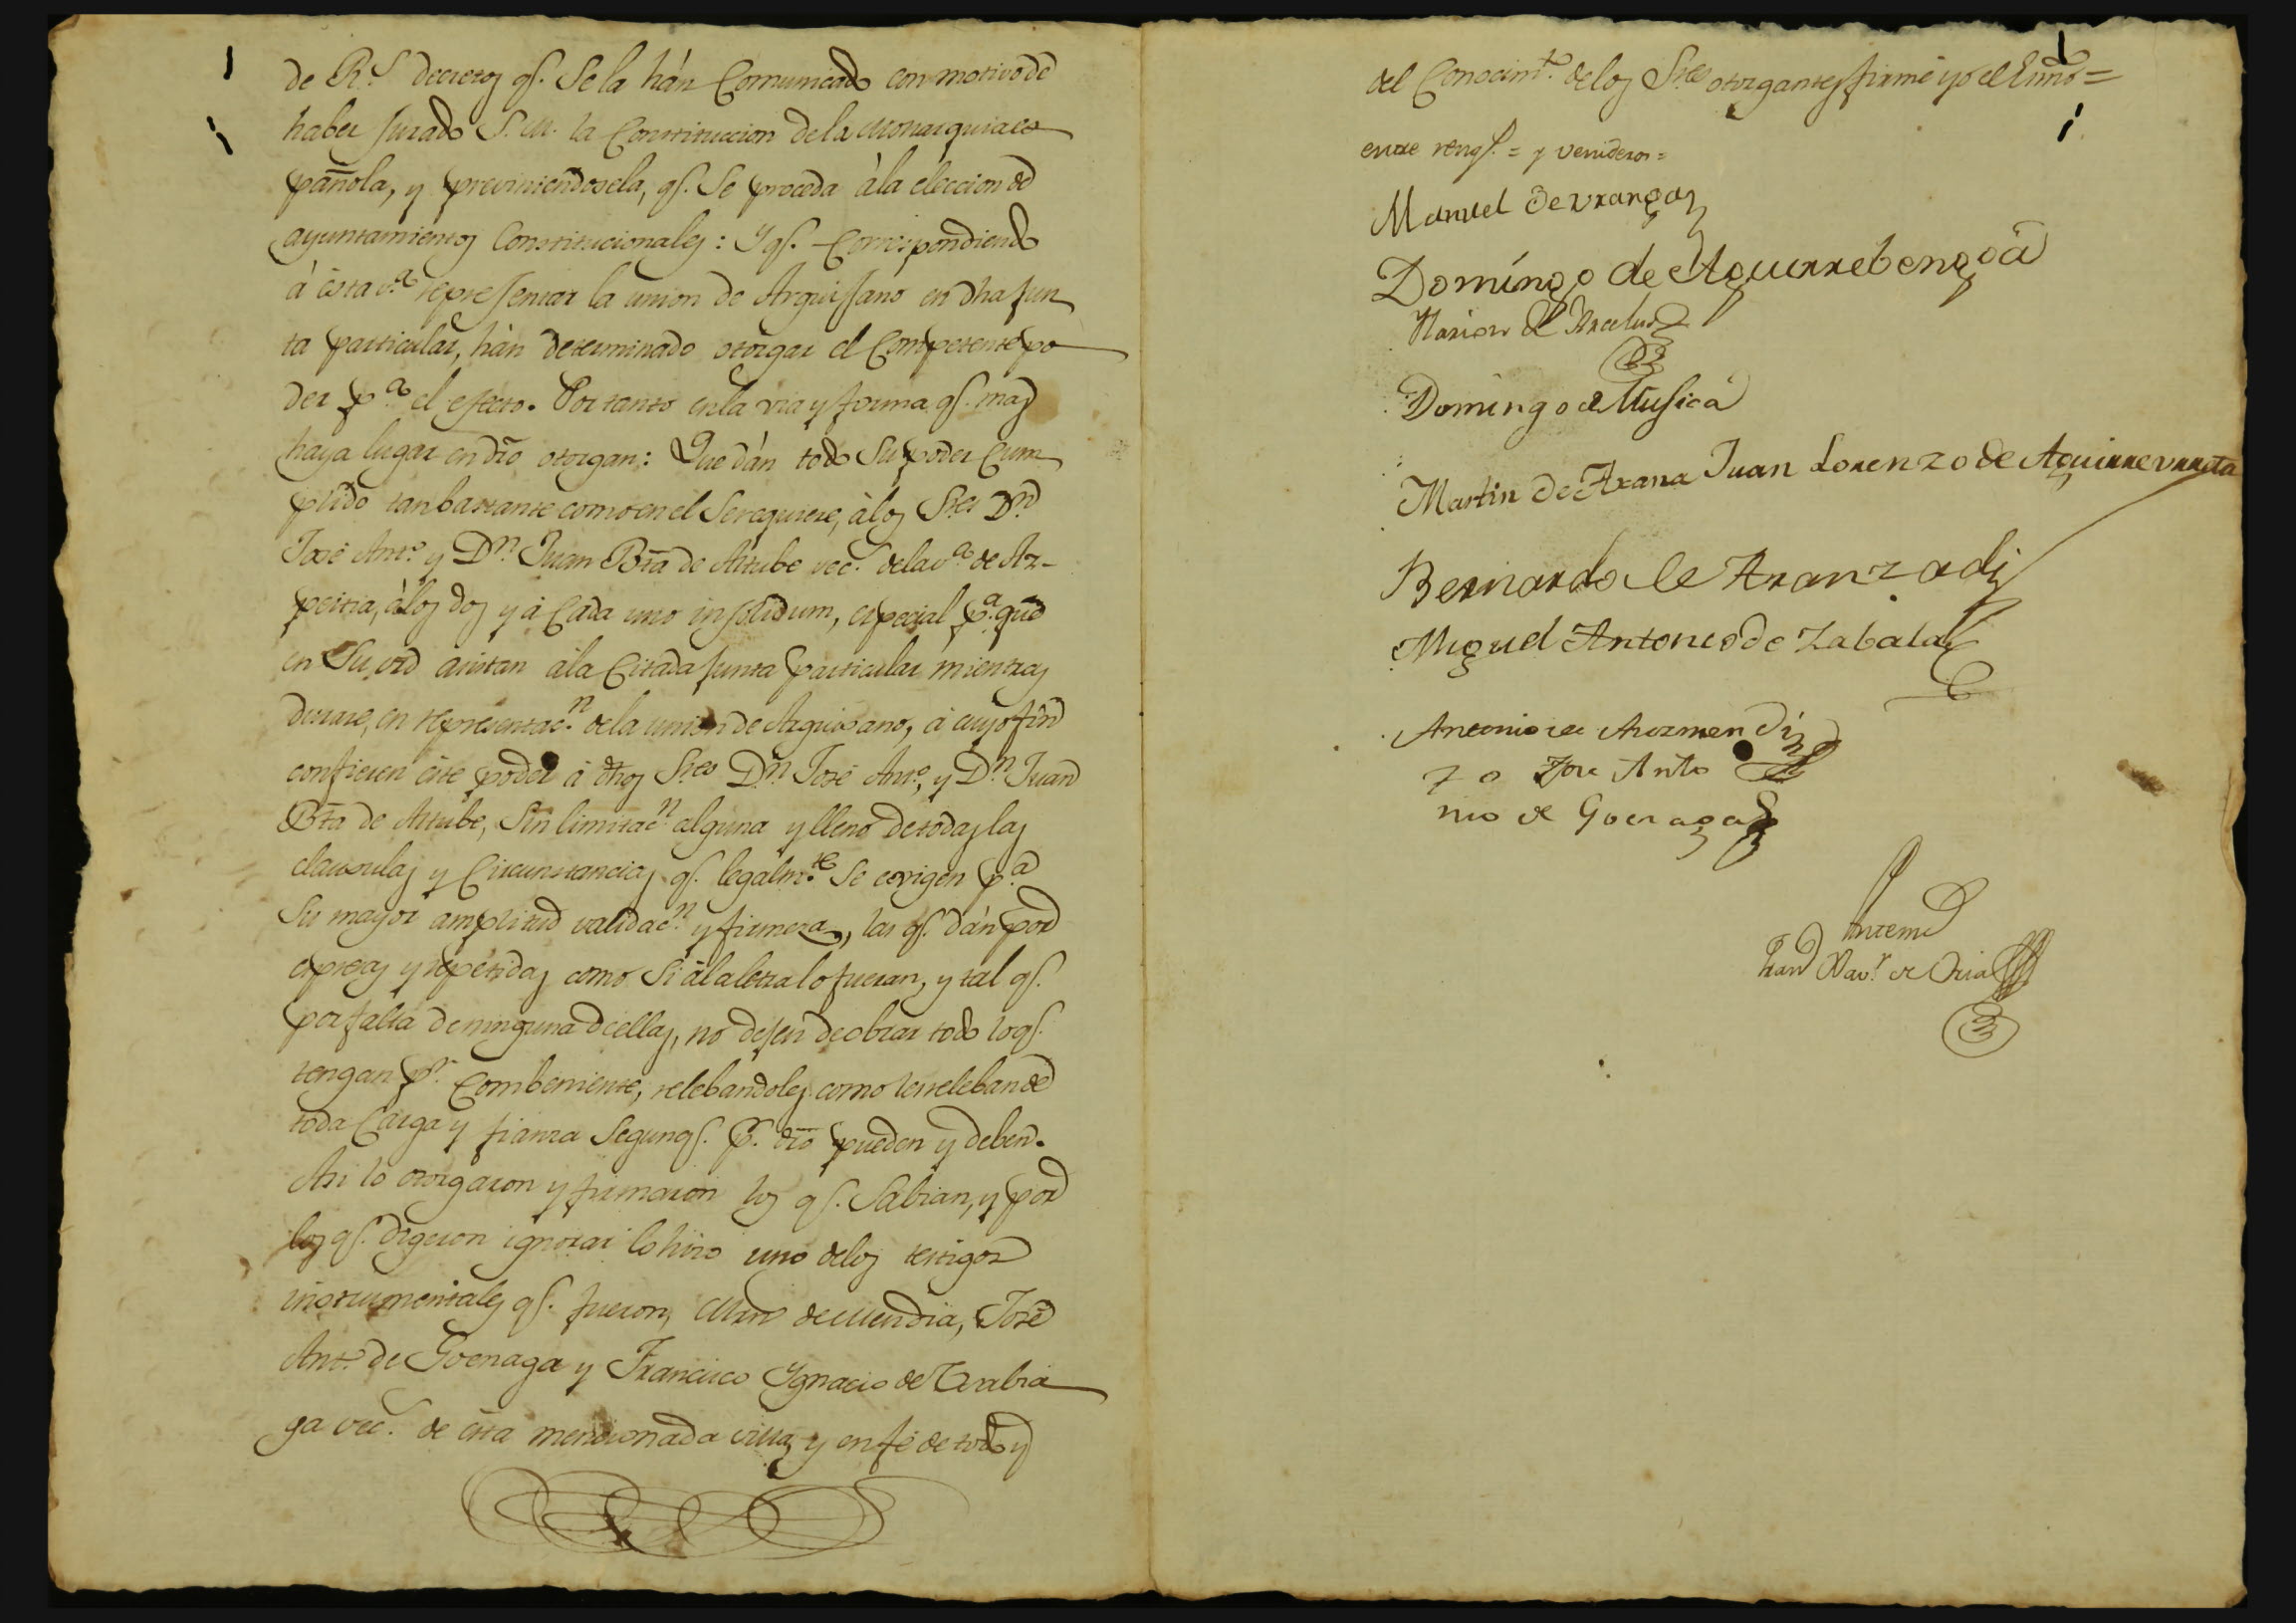 de R.s decretos qe. Se la hán Comunicado con motivo de
haber Jurado S. M. la Constitucion de la Monarquia es
pañola, y previniendosela, qe. Se proceda à la eleccion de
ayuntamientos Constitucionales: Y qe. Correspondiendo
à èsta v.a representar la union de Arguisano en dha Jun
ta particular, hàn determinado otorgar el Competente po
der p.a el efecto. Por tanto en la via y forma qe. mas
haya lugar en dro otorgan: Que dán todo Su poder Cum
plido tan bastante como en el Se requiere, à los S.res D.n
José Ant.o y D.n Juan Bta de Altube vec.s de la v.a de Az-
peitia, à los dos y à Cada uno in solidum, especial p.a que
en Su vrd asistan à la Citada Junta particular mientras
durare, en representac.n de la union de Arguisano, à cuyo fin
confieren èste poder à dhos S.res D.n José Ant.o, y D.n Juan
Bta de Altube, Sin limitac.n alguna y lleno de todas las
clausulas y Circunstancias qe. legalm.te Se exigen p.a
Su mayor amplitud validac.n y firmeza, las qe. dán por
espresas y repetidas como Si à la letra lo fueran, y tal qe.
por falta de ninguna de ellas, no dejen de obrar todo lo qe.
tengan p.r Combeniente, relebandoles como les releban de
toda Carga y fianza Segun qe. p.r dro pueden y deben.
Asi lo otorgaron y firmaron los qe. Sabian, y por
los qe. digeron ignorar lo hizo uno de los testigos
instrumentales qe. fueron, Mrn de Mendia, José
Ant.o de Goenaga y Francisco Ygnacio de Vrabia
ga vec.s de èsta mencionada villa, y en fé de todo y
del Conocim.to de los S.res otorgantes firmé yo el Esno=
entre rengs.=y venideros=
Manuel de Vranga
Domingo de Aguirrebengoa
de Arcelus
Domingo de Musica
Martin de Arana Juan Lorenzo de Aguirre vrreta
Bernardo de Aranzadi
Miguel Antonio de Zabala
Antonio de Arozmendi
Yo Jose Anto
nio de Goenaga
Antemi
Juan Xav.r de Oria